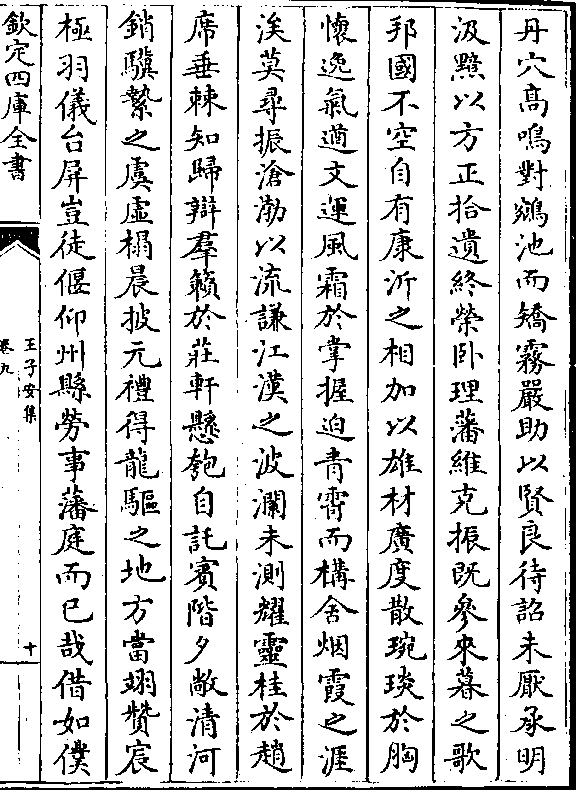 丹穴髙鳴對鵷池而矯霧嚴助以賢良待詔未厭承明
汲黯以方正拾遺終榮卧理藩維克振既參來暮之歌
邦國不空自有康沂之相加以雄材廣度散琬琰於胸
懷逸氣遒文運風霜於掌握迫青霄而構舍烟霞之涯
涘莫尋振滄渤以流謙江漢之波瀾未測耀靈桂於趙
席垂棘知歸辯羣籟於莊軒懸匏自託賓階夕敞清河
銷驥縶之虞虛榻晨披元禮得龍驅之地方當翊贊宸
極羽儀台屏豈徒偃仰州縣勞事藩庭而已哉借如僕
欽定四庫全書
王子安集
卷九
十